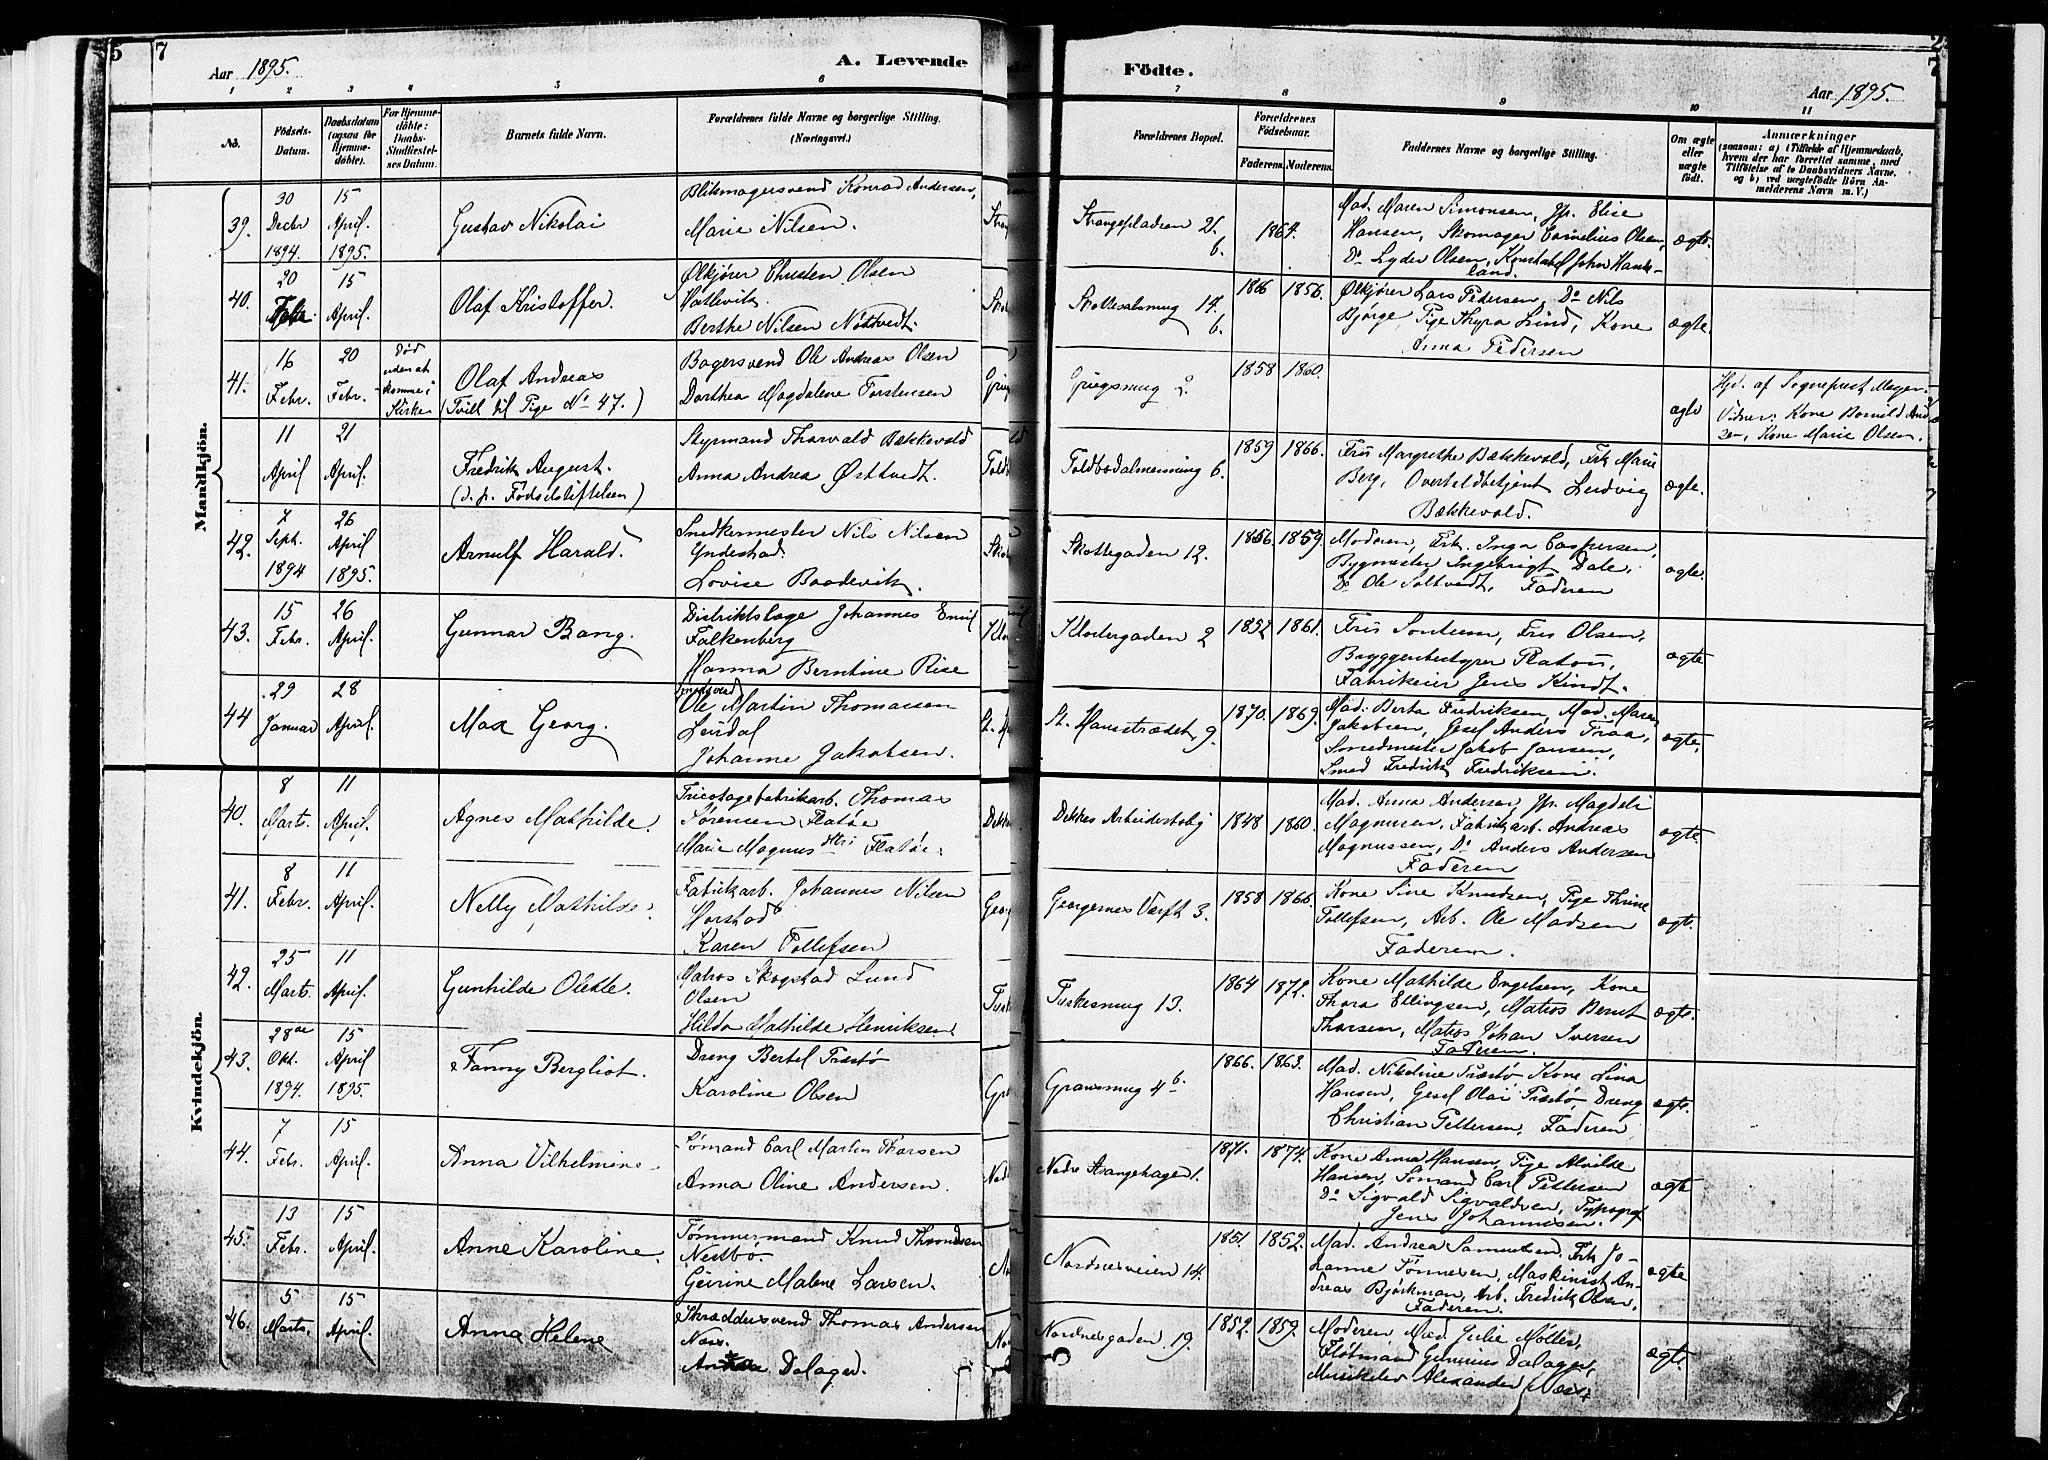 5 7
Aar 1895.
A. Levende
1 2 3 4 5 6
No.
Födsels-
Datum.
Daabsdatum
(ogsaa for
Hjemme-
döbte).
For Hjemme-
döbte:
Daabs-
Stadfæstel-
ses Datum.
Barnets fulde Navn.
Forældrenes fulde Navne og borgerlige Stilling.
(Næringsvei.)
Mandkjön.
39.
30
Decbr
1894.
15
April.
1895.
Gustav Nikolai
Bliksmagersvend Konrad Andersen,
Marie Nilsen.
40.
20
15
April.
Olaf Kristoffer.
Ølkjører Christen Olsen
Hatlevik.
Berthe Nilsen Nöttvedt.
41.
16
Febr.
20
Febr.
Död
uden at
komme i
Kirke
Olaf Andreas
(Tvill. til Pige No 47.)
Bagersvend Ole Andreas Olsen
Dorthea Magdalene Torstensen
11
April
21
April.
Fredrik August.
(d. p. Födselsstiftelsen)
Styrmand Thorvald Bækkevold
Anna Andrea Østtvedt.
42.
7
Sept.
1894
26
April
1895.
Arnulf Harald.
Snedkermester Nils Nilsen
Yndestad.
Lovise Baadevik.
43.
15
Febr.
26
April.
Gunnar Bang.
Distriktslæge Johannes Emil
Falkenberg
Hanna Berntine Rise
44
29
Januar
28
April.
Max Georg.
Smedsvend
Ole Martin Thomassen
Leirdal
Johanne Jakobsen.
Kvindekjön.
40.
8
Marts.
11
April.
Agnes Mathilde.
Tricotagefabrikarb. Thomas
Sørensen Flatøe
Marie Magnus Flatøe.
41.
8
Febr.
11
April.
Nelly Mathilde.
Fabrikarb. Johannes Nilsen
Harstad
Karen Tollefsen
42.
25
Marts.
11
April.
Gunhilde Olette.
Matros Skogstad Lund
Olsen
Hilda Mathilde Henriksen.
43.
28de
Okt.
1894.
15
April
1895.
Fanny Bergliot.
Dreng Bertel Træstø
Karoline Olsen
44.
7
Febr.
15
April.
Anna Vilhelmine
Sømand Carl Martin Thorsen
Anna Oline Andersen.
45.
13
Febr.
15
April.
Anne Karoline.
Tømmermand Knud Thronsen
Nestbø.
Geirine Malene Larsen.
46.
5
Marts.
15
April.
Anna Helene
Skræddersvend Thomas Andersen
Næss.
Dalager.
Födte.
Aar 1895.
7 8 9 10 11
Forældrenes Bopæl.
Forældrenes
Födselsaar.
Faderens. Moderens.
Faddernes Navne og borgerlige Stilling.
Om ægte
eller
uægte
födt.
Anmærkninger
(saasom: a) i Tilfælde af Hjemmedaab,
hvem der har forrettet samme, med
Tilföielse af to Daabsvidners Navne,
og b) ved uægtefödte Börn An-
melderens Navn m. V.)
Strangepladsen 2.
6.
1864.
Mad. Maren Simonsen, Jfr. Elise
Hansen, Skomager Cornelius Olsen,
Do Lyder Olsen, Konstabel John Hauke-
land.
ægte.
Skottesalmug 14.
6.
1866 1856.
Ølkjører Lars Pedersen, Do Nils
Bjorge, Pige Thyra Lund, Kone
Anna Pedersen
ægte.
Griegsmug 2.
1858 1860.
ægte
Hjd. af Sognepræst Meyer.
Vidner: Kone Bomild And
sen, Kone Marie Olsen.
Toldbodalmenning 6.
1859 1866.
Fru Margrethe Bækkevold, Frk. Marie
Berg, Overtoldbetjent Ludvig
Bækkevold.
ægte.
Skottegaden 12.
1856. 1859.
Moderen, Frk. Inga Caspersen,
Bygmester Ingebrigt Dale,
Do Ole Soltvedt, Faderen
ægte.
Klostergaden 2
1852 1861.
Fru Sontum, Frs Olsen,
Bryggeribestyrer Platou,
Fabrikeier Jens Kindt.
ægte
St. Hansstrædet 9.
1870. 1869.
Mad. Berta Fredriksen, Mad. Maren
Jakobsen, Gesel Anders Traa,
Smedmester Jakob Jansen,
Smed Fredrik Fredriksen.
ægte.
Dekkes Arbeiderbolig
1848 1860.
Mad. Anna Andersen, Jfr. Magdeli
Magnusen, Fabrikarb. Andreas
Magnussen, Do Anders Andersen
Faderen
ægte.
Georgernes Værft 3.
1858 1866.
Kone Sine Knudsen, Pige Thrine
Tollefsen, Arb. Ole Madsen
Faderen.
ægte.
Tuskesmug 13.
1864 1872.
Kone Mathilde Engelsen, Kone
Thora Ellingsen, Matros Bernt
Thorsen, Matros Johan Iversen
Faderen.
ægte.
Gransmug 4 b.
1866. 1863.
Mad. Nikoline Træstø Kone Lina
Hansen, Gesel Olai Træstø, Dreng
Christian Pettersen, Faderen
ægte.
Nedre Strangehagen 1.
1871. 1874.
Kone Anna Hansen, Pige Alvilde
Hansen, Sømand Carl Pettersen
Do Sigvald Sigvaldsen, Typograf
Jens Johannesen.
ægte
Nordnesveien 14.
1851. 1852.
Mad. Andrea Samuelsen. Frk Jo-
hanne Tönnesen, Maskinist An-
dreas Bjørkman, Arb. Fredrik Olsen.
Faderen.
ægte
Nordnesgaden 19.
1852. 1859.
Moderen, Mad. Julie Møller,
Fløtmand Gunnius Dalager,
Musikelev Alexander Næss
ægte.